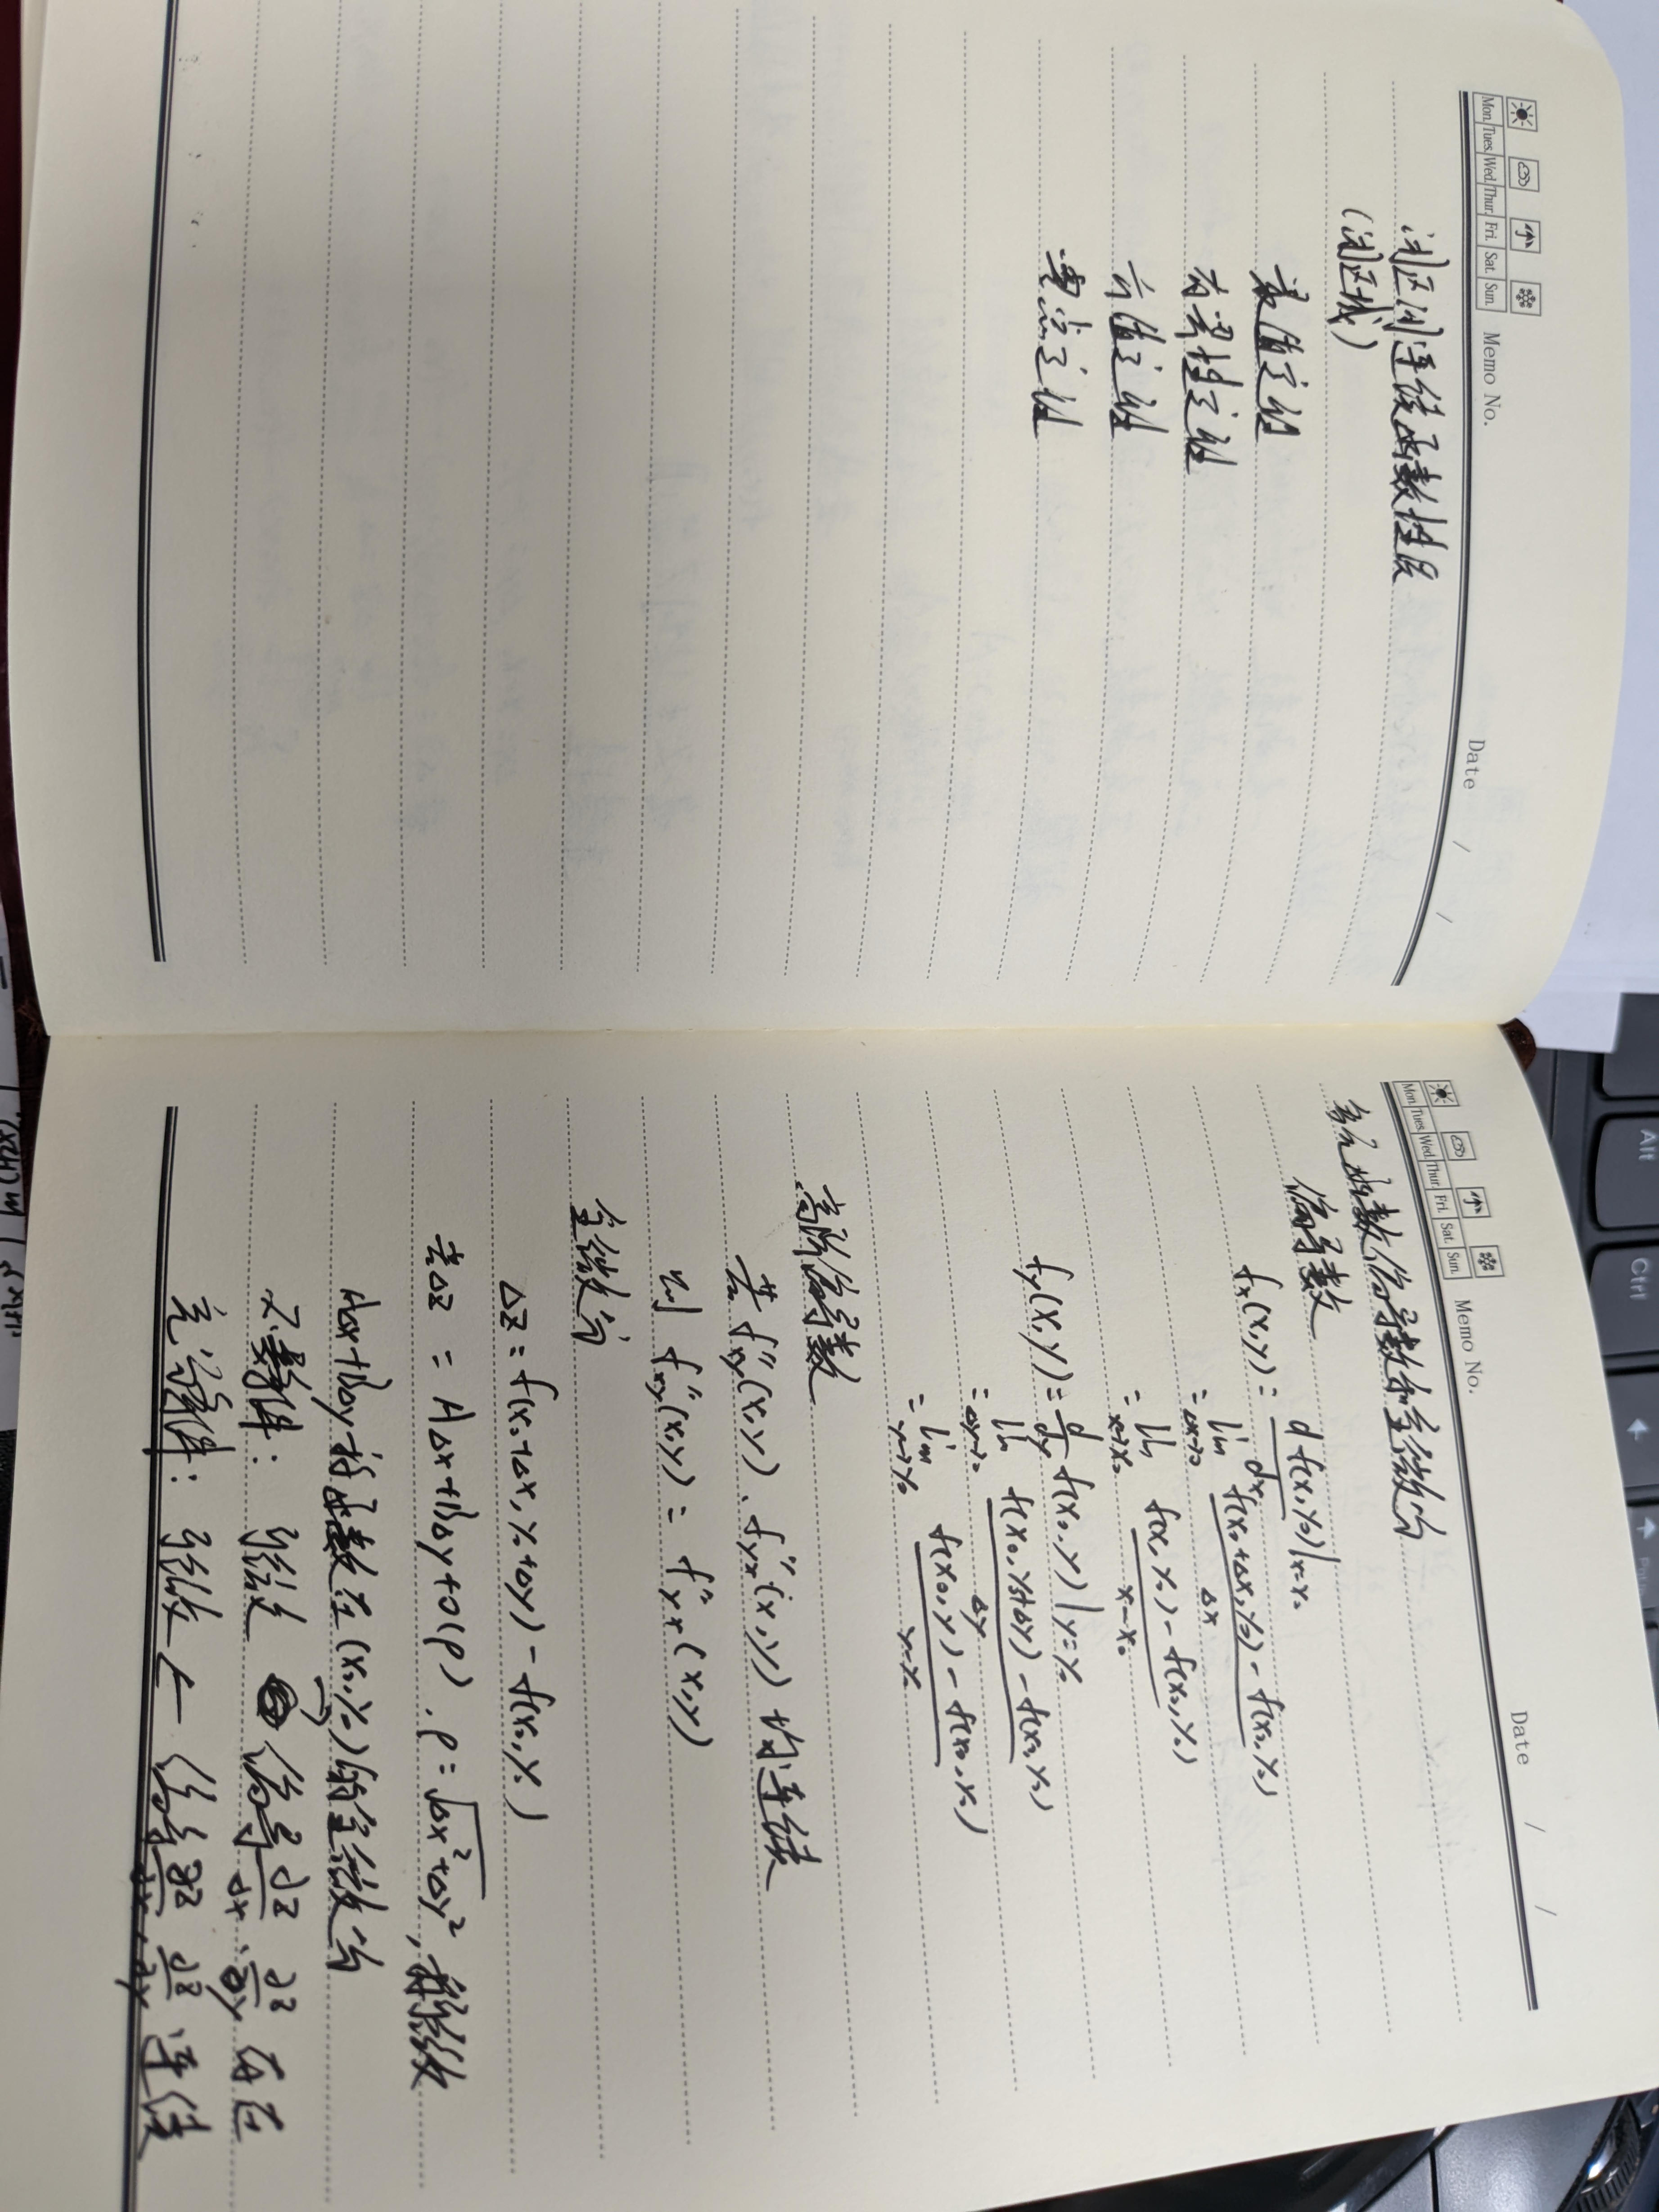 Mon. Tues. Wed. Thur. Fri. Sat. Sun. Memo No. Date / /
闭区间连续函数性质
(闭区域)
最值定理
有界性定理
介值定理
零点定理
Mon. Tues. Wed. Thur. Fri. Sat. Sun. Memo No. Date / /
多元函数偏导数和全微分
偏导数
fx(x,y) = d f(x,y₀)/dx |x=x₀
= lim Δx→0 f(x₀+Δx,y₀) - f(x₀,y₀) / Δx
= lim x→x₀ f(x,y₀) - f(x₀,y₀) / x-x₀
fy(x,y) = d/dy f(x₀,y) | y=y₀
= lim Δy→0 f(x₀,y₀+Δy) - f(x₀,y₀) / Δy
= lim y→y₀ f(x₀,y) - f(x₀,y₀) / y-y₀
高阶偏导数
若 f″xy(x,y), f″yx(x,y) 均连续
则 f″xy(x,y) = f″yx(x,y)
全微分
Δz = f(x₀+Δx, y₀+Δy) - f(x₀,y₀)
若Δz = AΔx+BΔy+o(ρ), ρ=√Δx²+Δy², 称可微
AΔx+BΔy为函数在(x₀,y₀)的全微分
必要条件: 可微 ⇒ 偏导 ∂z/∂x, ∂z/∂y 存在
充分条件: 可微 ← 偏导 ∂z/∂x, ∂z/∂y 连续
Alt
Ctrl